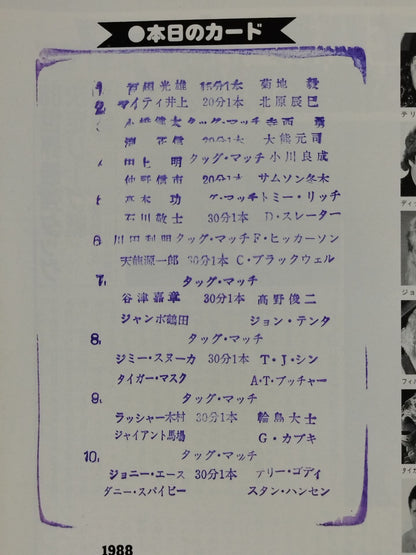 ●本日のカード
1. 百田光雄 15分1本 菊地 毅
2. マイティ井上 20分1本 北原辰巳
小橋健太 タッグ・マッチ 寺西 勇
20分1本 大熊元司
田上 明 タッグ・マッチ 小川良成
仲野信市 20分1本 サムソン冬木
高木 功 タッグ・マッチ トミー・リッチ
石川敬士 30分1本 D・スレーター
6. 川田利明 タッグ・マッチ F・ヒッカーソン
天龍源一郎 30分1本 C・ブラックウェル
7. タッグ・マッチ
谷津嘉章 30分1本 高野俊二
ジャンボ鶴田 ジョン・テンタ
8. タッグ・マッチ
ジミー・スヌーカ 30分1本 T・J・シン
タイガー・マスク A・T・ブッチャー
9. タッグ・マッチ
ラッシャー木村 30分1本 輪島大士
ジャイアント馬場 G・カブキ
10. タッグ・マッチ
ジョニー・エース 30分1本 テリー・ゴディ
ダニー・スパイビー スタン・ハンセン
1988